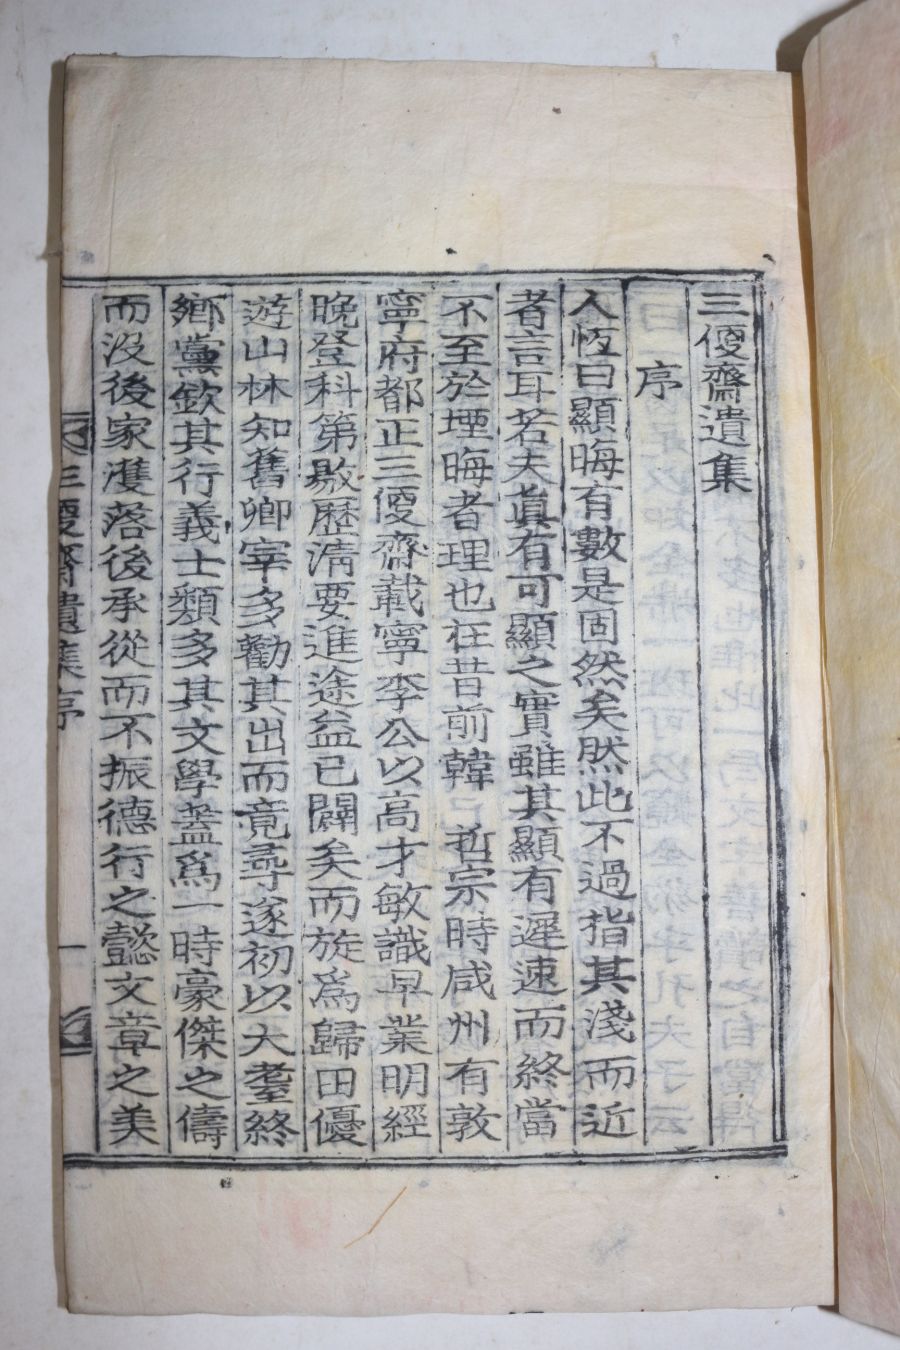 三優齋遺集
序
人恆曰顯晦有數是固然矣然此不過指其淺而近
者言耳若夫眞有可顯之實雖其顯有遲速而終當
不至於堙晦者理也在昔前韓 哲宗時咸州有敦
寧府都正三優齋載寧李公以高才敏識早業明經
晩登科第敭歷淸要進途益已闢矣而旋爲歸田優
遊山林知舊卿宰多勸其出而竟尋遂初以大耋終
鄕黨欽其行義士類多其文學蓋爲一時豪傑之儔
而沒後家濩落後承從而不振德行之懿文章之美
三優齋遺集序
一